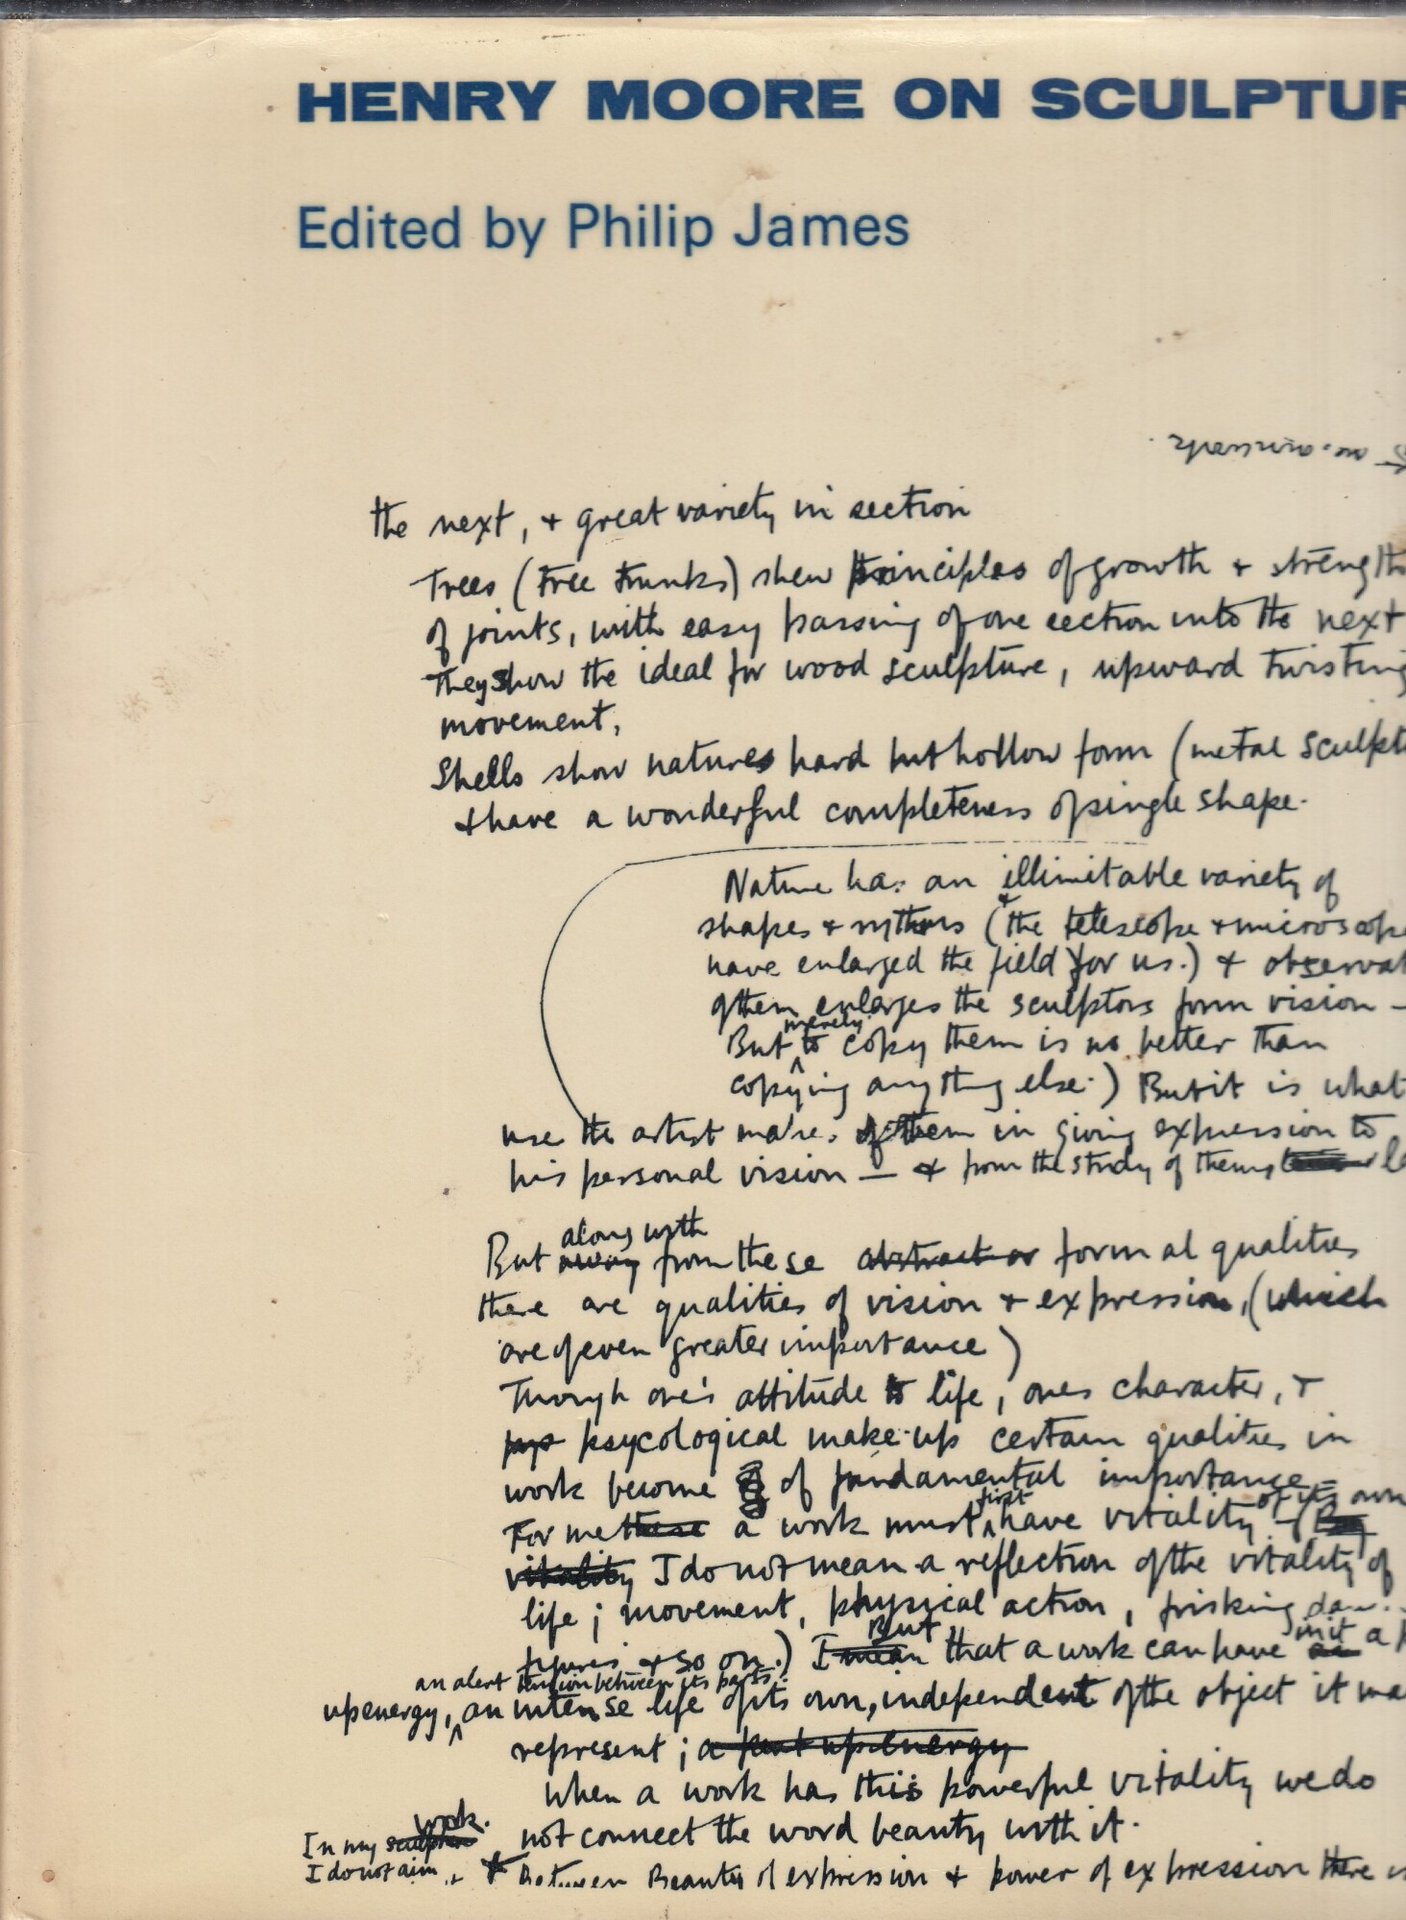 HENRY MOORE ON SCULPTUR
Edited by Philip James
the next, + great variety in section
Trees (tree trunks) shew principles of growth + strength
of joints, with easy passing of one section into the next
They show the ideal for wood sculpture, upward twisting
movement,
Shells show natures hard but hollow form (metal sculpt
+ have a wonderful completeness of single shape.
Nature has an illimitable variety of
shapes + rythms (the telescope + microscope
have enlarged the field for us.) + observat
of them enlarges the sculptors form vision –
merely
But to copy them is no better than
copying anything else.) But it is what
use the artist makes of them in giving expression to
his personal vision — + from the study of them
along with
But away from these abstract or formal qualities
there are qualities of vision + expression, (which
are of even greater importance)
Though one's attitude to life, ones character, +
psycological make-up certain qualities in
work become of fundamental importance –
first of its own
For me these a work must have vitality
vitality I do not mean a reflection of the vitality of
life; movement, physical action, frisking
But in it
figures + so on.) I mean that a work can have a
an alert tension between its parts
up energy, an intense life of its own, independent of the object it ma
represent; a pent up energy
When a work has this powerful vitality we do
work.
In my sculpture not connect the word beauty with it.
I do not aim Between Beauty of expression + power of expression there is